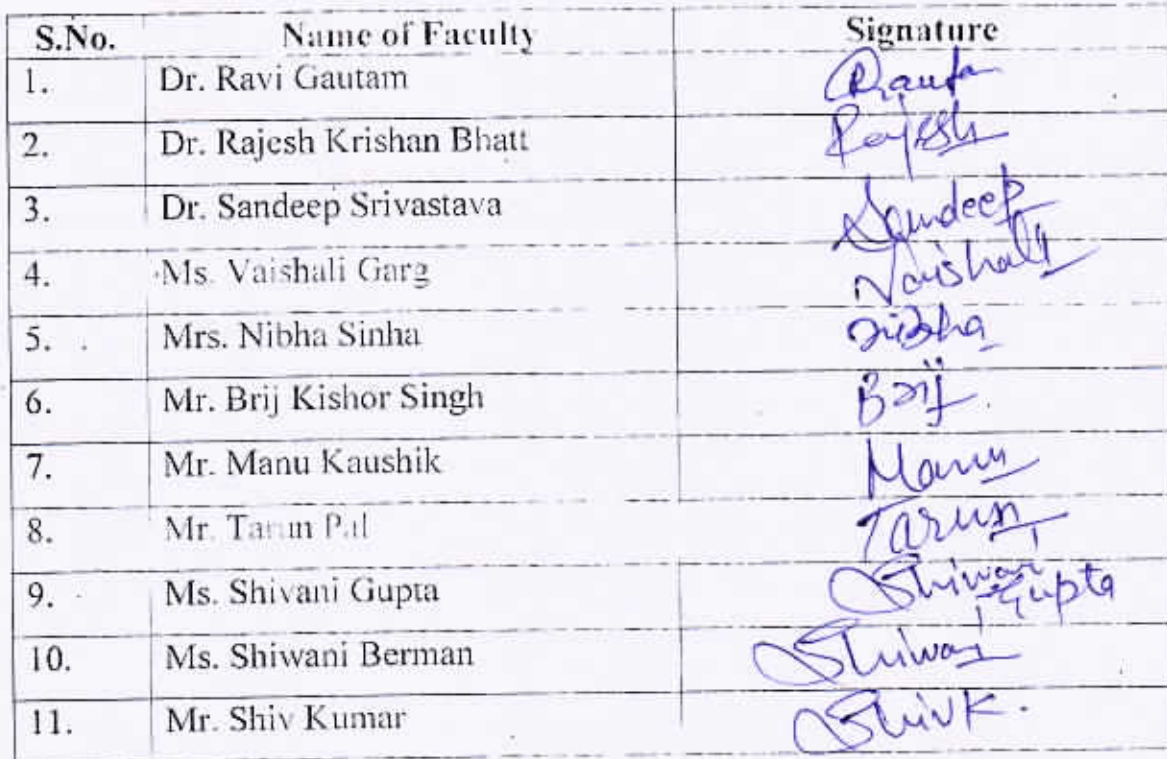 S.No. Name of Faculty Signature
1. Dr. Ravi Gautam
2. Dr. Rajesh Krishan Bhatt Rajesh
3. Dr. Sandeep Srivastava Sandeep
4. Ms. Vaishali Garg Vaishali
5. Mrs. Nibha Sinha Nibha
6. Mr. Brij Kishor Singh Brij
7. Mr. Manu Kaushik Manu
8. Mr. Tarun Pal Tarun
9. Ms. Shivani Gupta Shiwani Gupta
10. Ms. Shiwani Berman Shiwani
11. Mr. Shiv Kumar Shivk.